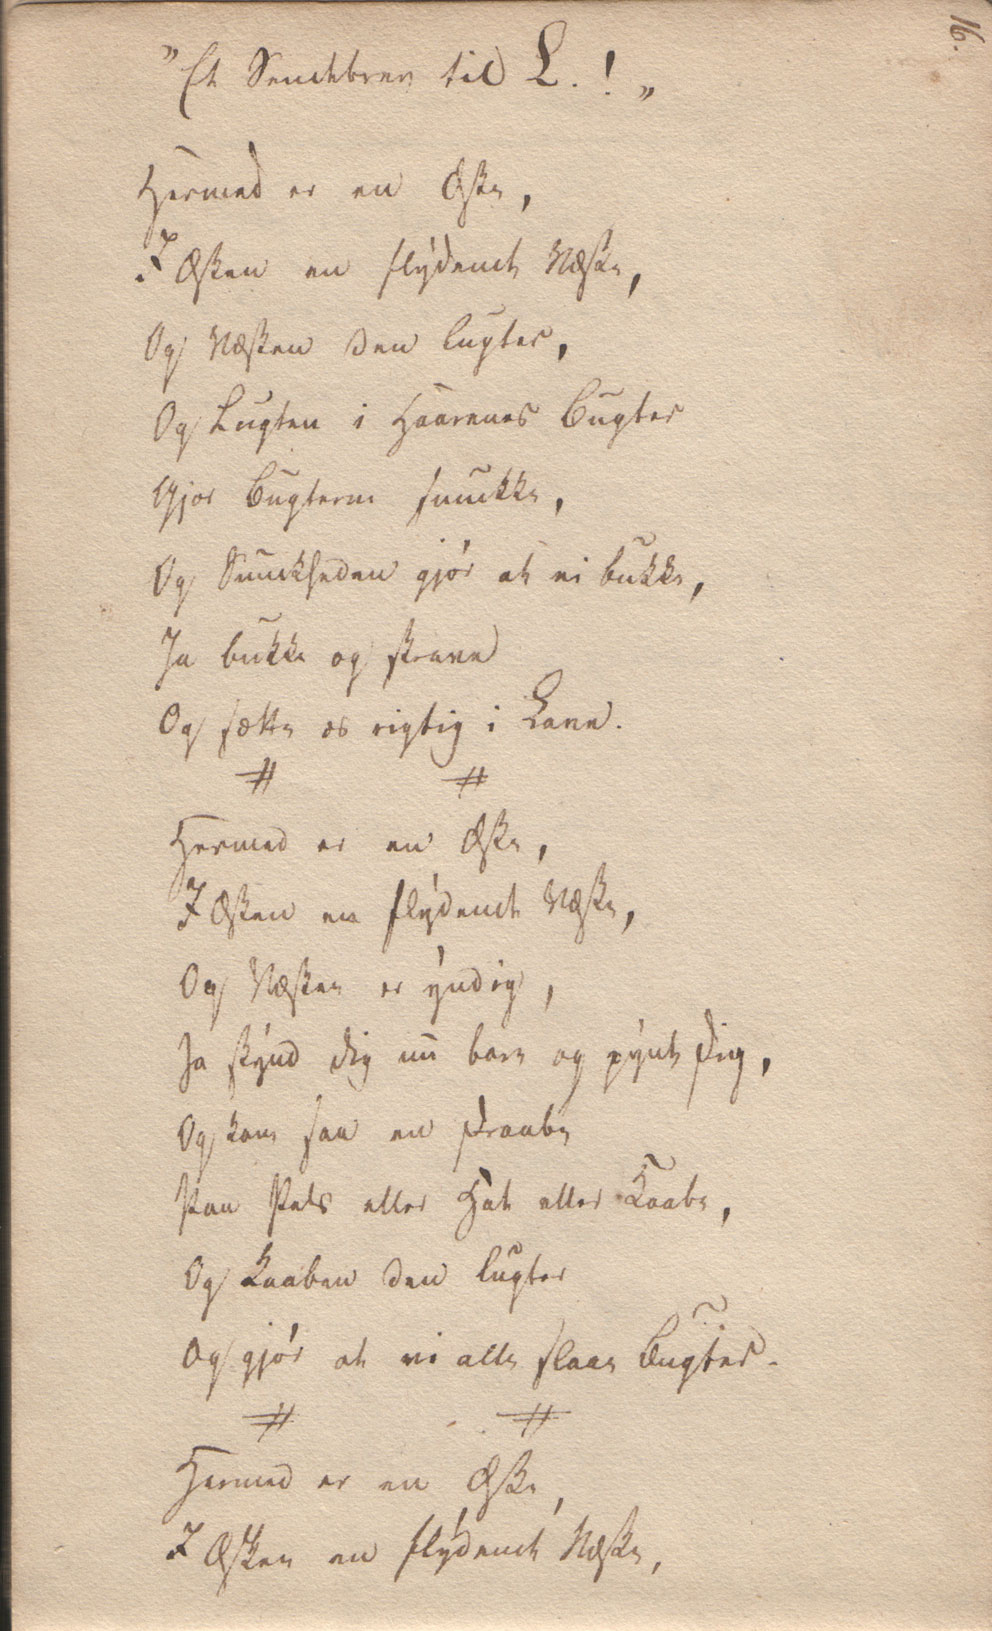 16.
"Et Sendebrev til L.!"
Hermed er en Æske,
I Æsken en flydende Væske,
Og Væsken den lugter,
Og Lugten i Haarenes Bugter
Gjør Bugterne smukke,
Og Smukheden gjør at vi bukke,
Ja bukke og skrave
Og sætte os rigtig i Lave.
Hermed er en Æske,
I Æsken en flydende Væske,
Og Væsken er yndig,
Ja skynd dig nu bare og pynt dig,
Og kom saa en Draabe
Paa Pels eller Hat eller Kaabe,
Og Kaaben den lugter
Og gjør at vi alle slaae Bugter.
Hermed er en Æske,
I Æsken en flydende Væske,